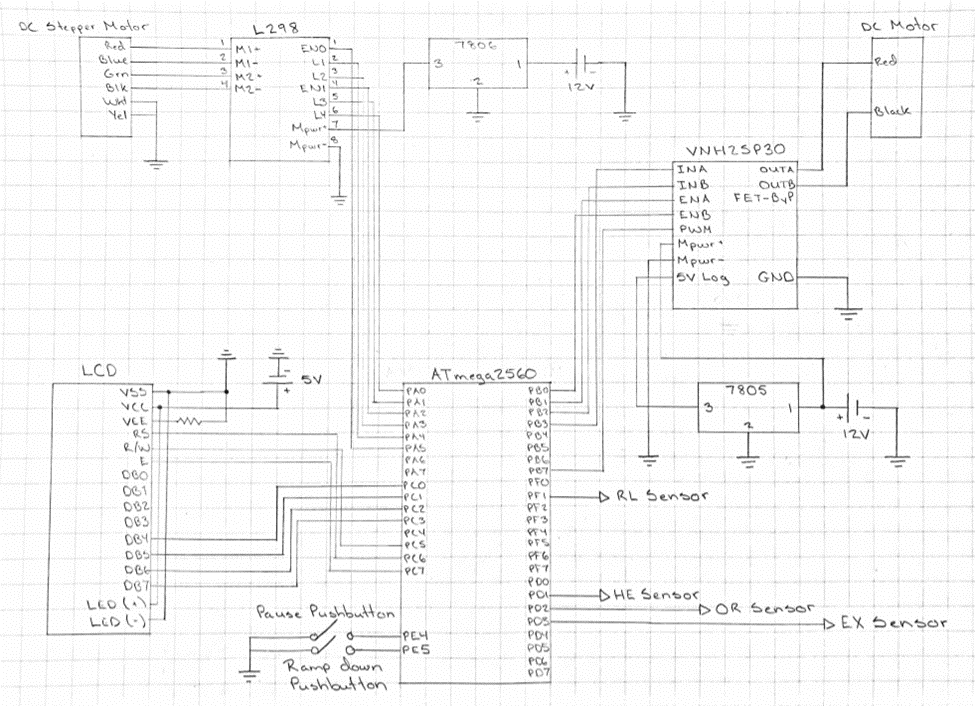 DC Stepper Motor
Red
Blue
Grn
Blk
Wht
Yel
L298
1 M1+
2 M1-
3 M2+
4 M2-
EN0 1
L1 2
L2 3
EN1 4
L3 5
L4 6
Mpwr+ 7
Mpwr- 8
7806
3 1
2
+ -
12V
DC Motor
Red
Black
VNH2SP30
INA OUTA
INB OUTB
ENA FET-ByP
ENB
PWM
Mpwr+
Mpwr-
5V Log GND
7805
3 1
2
+ -
12V
LCD
VSS
VCC
VEE
RS
R/W
E
DB0
DB1
DB2
DB3
DB4
DB5
DB6
DB7
LED (+)
LED (-)
-
+
5V
ATmega2560
PA0 PB0
PA1 PB1
PA2 PB2
PA3 PB3
PA4 PB4
PA5 PB5
PA6 PB6
PA7 PB7
PC0 PF0
PC1 PF1
PC2 PF2
PC3 PF3
PC4 PF4
PC5 PF5
PC6 PF6
PC7 PF7
PD0
PD1
PD2
PD3
PD4
PD5
PD6
PD7
PE4
PE5
RL Sensor
HE Sensor
OR Sensor
EX Sensor
Pause Pushbutton
Ramp down
Pushbutton